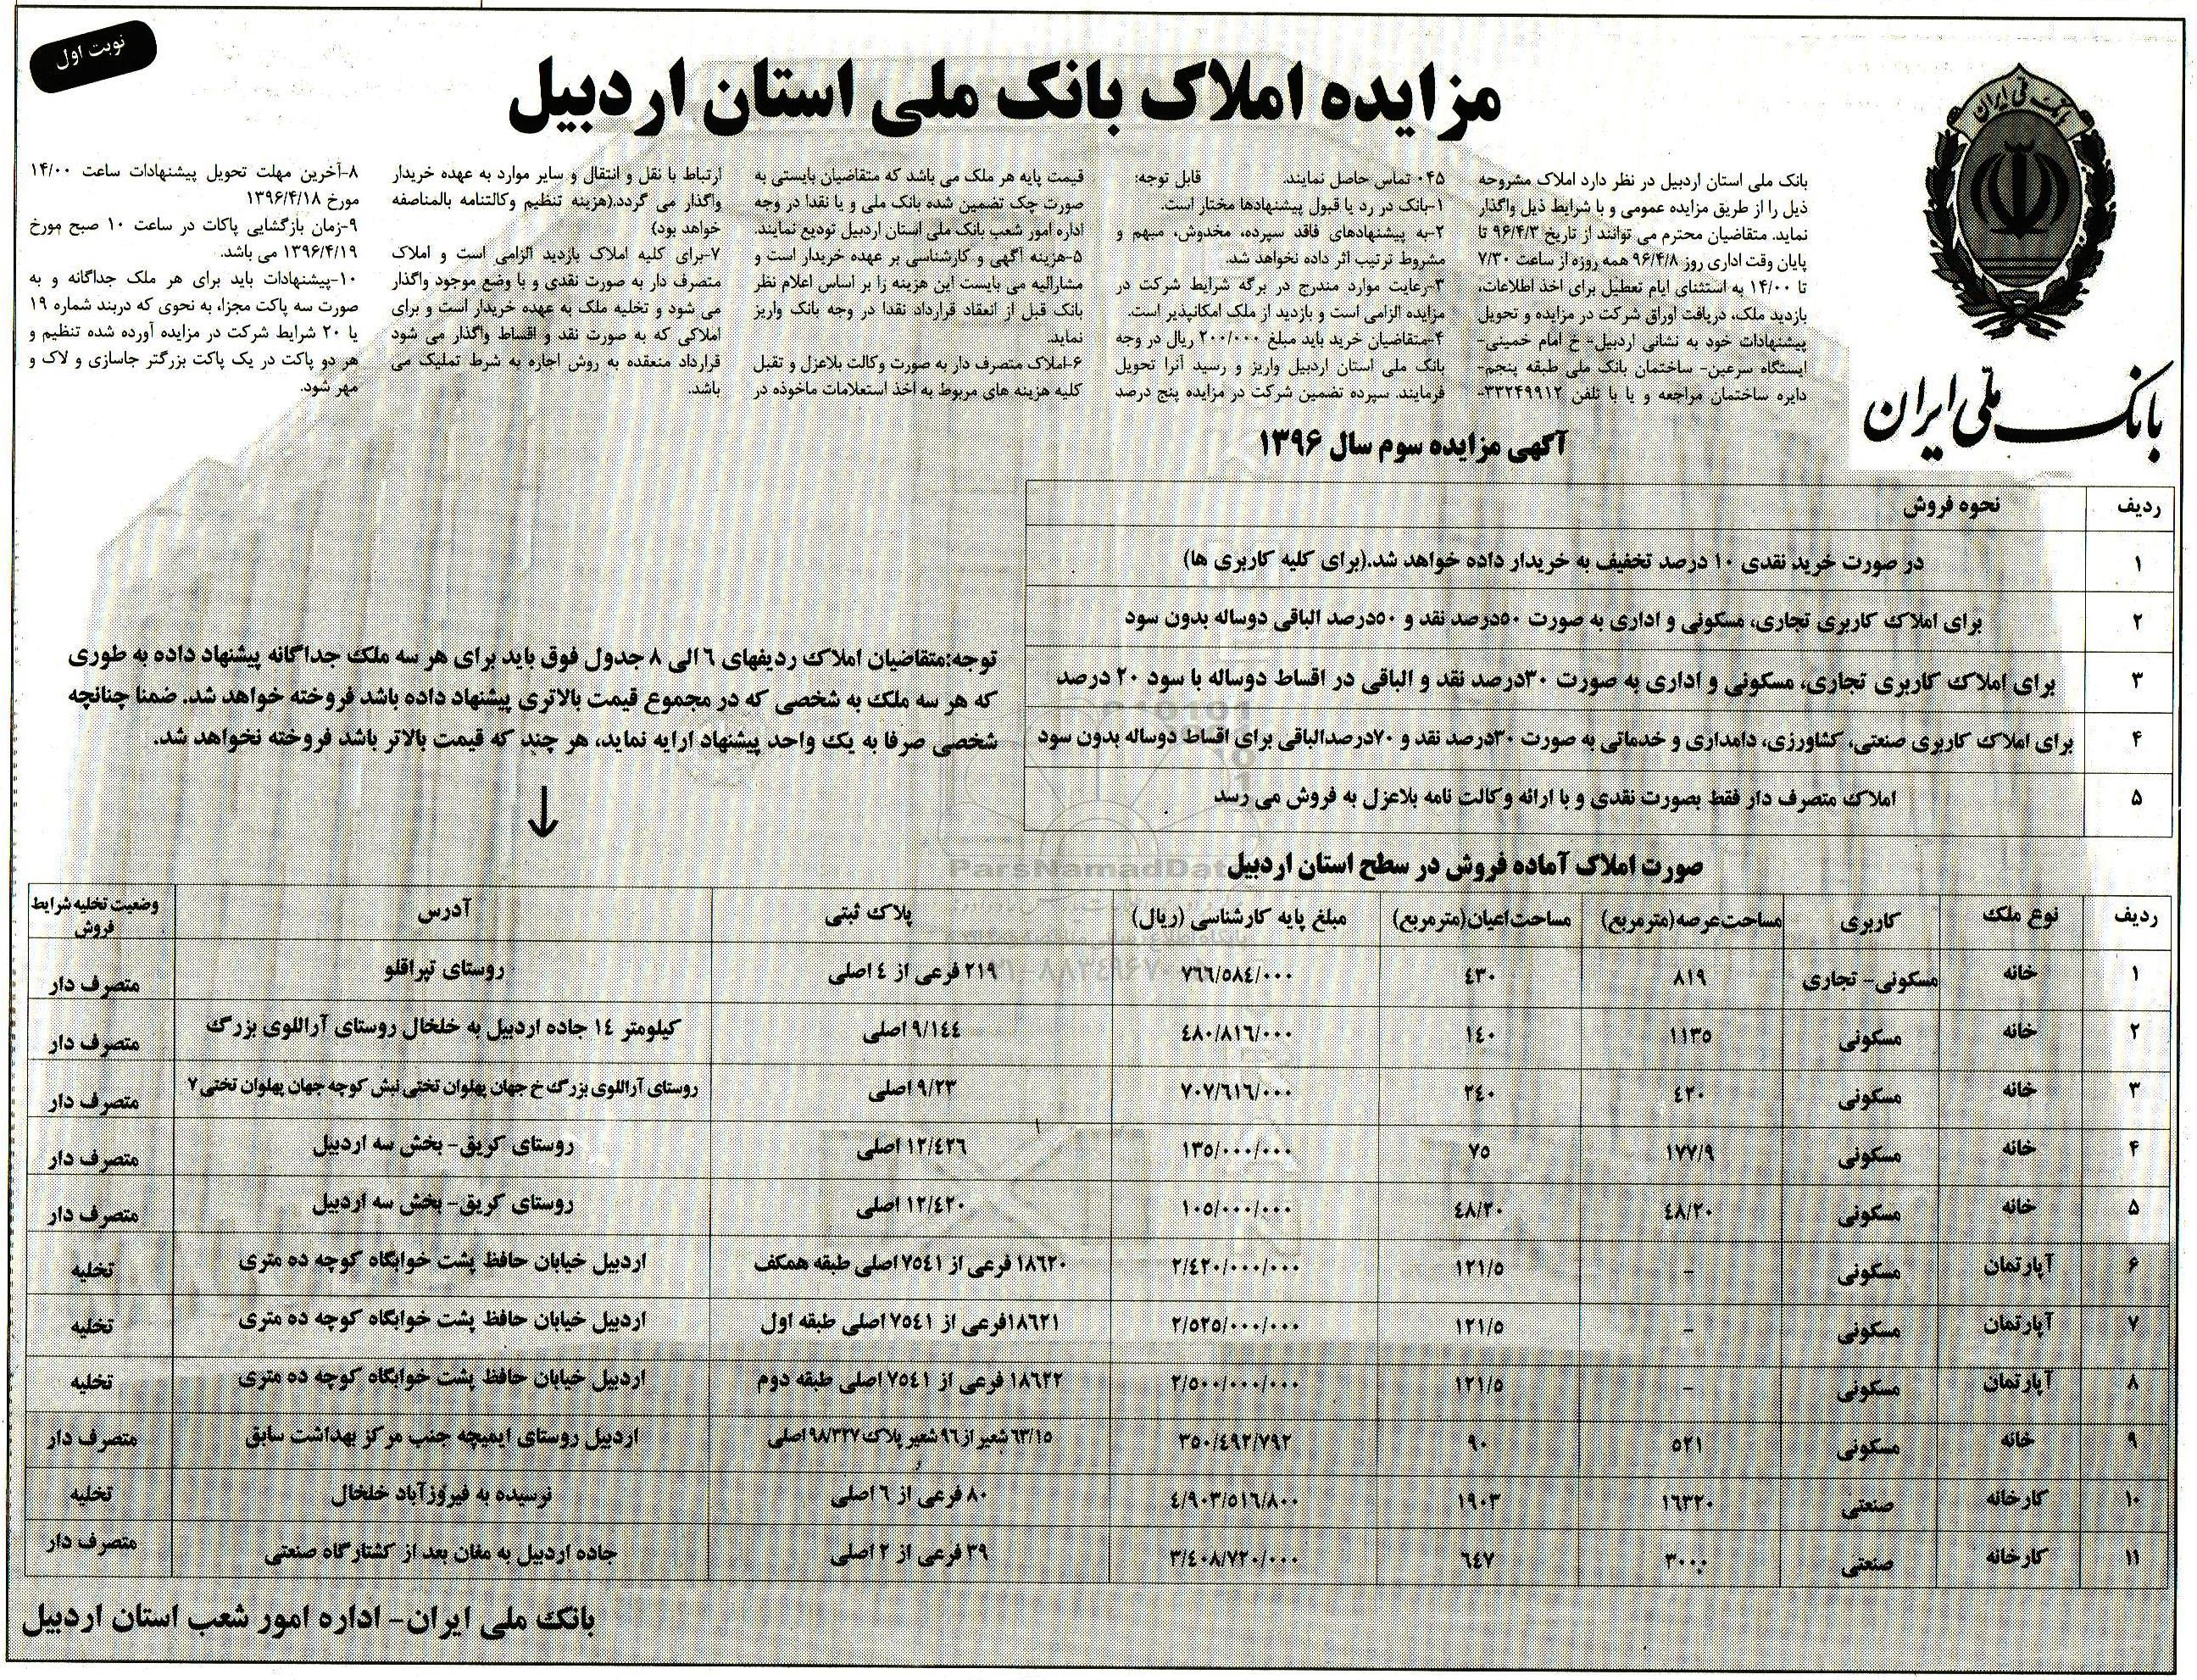 نوبت اول
مزایده املاک بانک ملی استان اردبیل
بانک ملی ایران
بانک ملی ایران
بانک ملی استان اردبیل در نظر دارد املاک مشروحه
ذیل را از طریق مزایده عمومی و با شرایط ذیل واگذار
نماید. متقاضیان محترم می توانند از تاریخ ۹۶/۴/۳ تا
پایان وقت اداری روز ۹۶/۴/۸ همه روزه از ساعت ۷/۳۰
تا ۱۴/۰۰ به استثنای ایام تعطیل برای اخذ اطلاعات،
بازدید ملک، دریافت اوراق شرکت در مزایده و تحویل
پیشنهادات خود به نشانی اردبیل- خ امام خمینی-
ایستگاه سرعین- ساختمان بانک ملی طبقه پنجم-
دایره ساختمان مراجعه و یا با تلفن ۳۳۲۴۹۹۱۲-
۰۴۵ تماس حاصل نمایند. قابل توجه:
۱-بانک در رد یا قبول پیشنهادها مختار است.
۲-به پیشنهادهای فاقد سپرده، مخدوش، مبهم و
مشروط ترتیب اثر داده نخواهد شد.
۳-رعایت موارد مندرج در برگه شرایط شرکت در
مزایده الزامی است و بازدید از ملک امکانپذیر است.
۴-متقاضیان خرید باید مبلغ ۲۰۰/۰۰۰ ریال در وجه
بانک ملی استان اردبیل واریز و رسید آنرا تحویل
فرمایند. سپرده تضمین شرکت در مزایده پنج درصد
قیمت پایه هر ملک می باشد که متقاضیان بایستی به
صورت چک تضمین شده بانک ملی و یا نقدا در وجه
اداره امور شعب بانک ملی استان اردبیل تودیع نمایند.
۵-هزینه آگهی و کارشناسی بر عهده خریدار است و
مشارالیه می بایست این هزینه را بر اساس اعلام نظر
بانک قبل از انعقاد قرارداد نقدا در وجه بانک واریز
نماید.
۶-املاک متصرف دار به صورت وکالت بلاعزل و تقبل
کلیه هزینه های مربوط به اخذ استعلامات ماخوذه در
ارتباط با نقل و انتقال و سایر موارد به عهده خریدار
واگذار می گردد.(هزینه تنظیم وکالتنامه بالمناصفه
خواهد بود)
۷-برای کلیه املاک بازدید الزامی است و املاک
متصرف دار به صورت نقدی و با وضع موجود واگذار
می شود و تخلیه ملک به عهده خریدار است و برای
املاکی که به صورت نقد و اقساط واگذار می شود
قرارداد منعقده به روش اجاره به شرط تملیک می
باشد.
۸-آخرین مهلت تحویل پیشنهادات ساعت ۱۴/۰۰
مورخ ۱۳۹۶/۴/۱۸
۹-زمان بازگشایی پاکات در ساعت ۱۰ صبح مورخ
۱۳۹۶/۴/۱۹ می باشد.
۱۰-پیشنهادات باید برای هر ملک جداگانه و به
صورت سه پاکت مجزا، به نحوی که دربند شماره ۱۹
یا ۲۰ شرایط شرکت در مزایده آورده شده تنظیم و
هر دو پاکت در یک پاکت بزرگتر جاسازی و لاک و
مهر شود.
آگهی مزایده سوم سال ۱۳۹۶
ردیف نحوه فروش
۱ در صورت خرید نقدی ۱۰ درصد تخفیف به خریدار داده خواهد شد.(برای کلیه کاربری ها)
۲ برای املاک کاربری تجاری، مسکونی و اداری به صورت ۵۰درصد نقد و ۵۰درصد الباقی دوساله بدون سود
۳ برای املاک کاربری تجاری، مسکونی و اداری به صورت ۳۰درصد نقد و الباقی در اقساط دوساله با سود ۲۰ درصد
۴ برای املاک کاربری صنعتی، کشاورزی، دامداری و خدماتی به صورت ۳۰درصد نقد و ۷۰درصدالباقی برای اقساط دوساله بدون سود
۵ املاک متصرف دار فقط بصورت نقدی و با ارائه وکالت نامه بلاعزل به فروش می رسد
توجه:متقاضیان املاک ردیفهای ۶ الی ۸ جدول فوق باید برای هر سه ملک جداگانه پیشنهاد داده به طوری
که هر سه ملک به شخصی که در مجموع قیمت بالاتری پیشنهاد داده باشد فروخته خواهد شد. ضمنا چنانچه
شخصی صرفا به یک واحد پیشنهاد ارایه نماید، هر چند که قیمت بالاتر باشد فروخته نخواهد شد.
ParsNamadData
صورت املاک آماده فروش در سطح استان اردبیل
ردیف نوع ملک کاربری مساحت عرصه(مترمربع) مساحت اعیان(مترمربع) مبلغ پایه کارشناسی (ریال) پلاک ثبتی آدرس وضعیت تخلیه شرایط فروش
۱ خانه مسکونی- تجاری ۸۱۹ ۴۳۰ ۷۶۶/۵۸۴/۰۰۰ ۲۱۹ فرعی از ۴ اصلی روستای تپراقلو متصرف دار
۲ خانه مسکونی ۱۱۳۵ ۱۴۰ ۴۸۰/۸۱۶/۰۰۰ ۹/۱۴۴ اصلی کیلومتر ۱۴ جاده اردبیل به خلخال روستای آراللوی بزرگ متصرف دار
۳ خانه مسکونی ۴۲۰ ۲۴۰ ۷۰۷/۶۱۶/۰۰۰ ۹/۲۳ اصلی روستای آراللوی بزرگ خ جهان پهلوان تختی نبش کوچه جهان پهلوان تختی ۷ متصرف دار
۴ خانه مسکونی ۱۷۷/۹ ۷۵ ۱۳۵/۰۰۰/۰۰۰ ۱۲/۴۲۶ اصلی روستای کریق- بخش سه اردبیل متصرف دار
۵ خانه مسکونی ۴۸/۲۰ ۴۸/۲۰ ۱۰۵/۰۰۰/۰۰۰ ۱۲/۴۲۰ اصلی روستای کریق- بخش سه اردبیل متصرف دار
۶ آپارتمان مسکونی - ۱۲۱/۵ ۲/۴۲۰/۰۰۰/۰۰۰ ۱۸۶۲۰ فرعی از ۷۵۴۱ اصلی طبقه همکف اردبیل خیابان حافظ پشت خوابگاه کوچه ده متری تخلیه
۷ آپارتمان مسکونی - ۱۲۱/۵ ۲/۵۲۵/۰۰۰/۰۰۰ ۱۸۶۲۱فرعی از ۷۵۴۱ اصلی طبقه اول اردبیل خیابان حافظ پشت خوابگاه کوچه ده متری تخلیه
۸ آپارتمان مسکونی - ۱۲۱/۵ ۲/۵۰۰/۰۰۰/۰۰۰ ۱۸۶۲۲ فرعی از ۷۵۴۱ اصلی طبقه دوم اردبیل خیابان حافظ پشت خوابگاه کوچه ده متری تخلیه
۹ خانه مسکونی ۵۲۱ ۹۰ ۳۵۰/۴۹۲/۷۹۲ ۶۳/۱۵ شعیر از ۹۶ شعیر پلاک ۹۸/۳۲۷ اصلی اردبیل روستای ایمیچه جنب مرکز بهداشت سابق متصرف دار
۱۰ کارخانه صنعتی ۱۶۳۲۰ ۱۹۰۳ ۴/۹۰۳/۵۱۶/۸۰۰ ۸۰ فرعی از ۶ اصلی نرسیده به فیروزآباد خلخال تخلیه
۱۱ کارخانه صنعتی ۳۰۰۰ ۶۴۷ ۳/۴۰۸/۷۲۰/۰۰۰ ۳۹ فرعی از ۲ اصلی جاده اردبیل به مغان بعد از کشتارگاه صنعتی متصرف دار
بانک ملی ایران- اداره امور شعب استان اردبیل